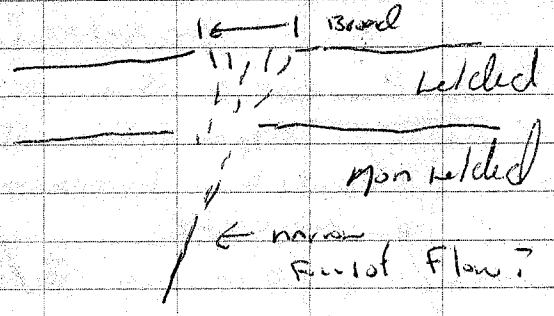 Broad
welded
Non welded
← narrow
Flow?